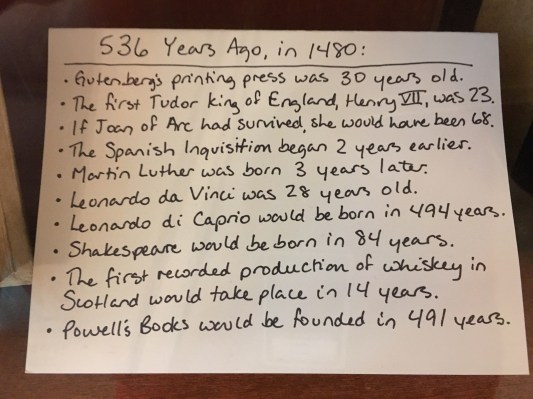 536 Years Ago, in 1480:
• Gutenberg's printing press was 30 years old.
• The first Tudor king of England, Henry VII, was 23.
• If Joan of Arc had survived, she would have been 68.
• The Spanish Inquisition began 2 years earlier.
• Martin Luther was born 3 years later.
• Leonardo da Vinci was 28 years old.
• Leonardo di Caprio would be born in 494 years.
• Shakespeare would be born in 84 years.
• The first recorded production of whiskey in
Scotland would take place in 14 years.
• Powell's Books would be founded in 491 years.